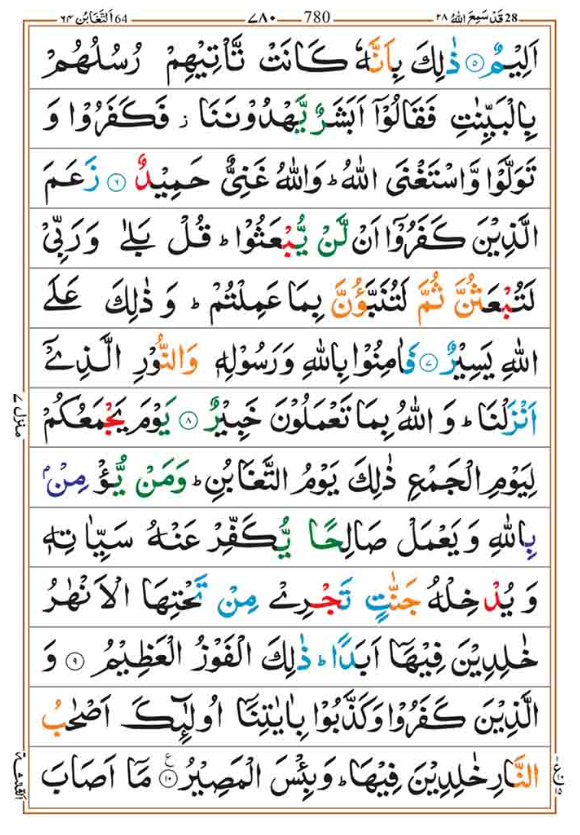 28 قَدْ سَمِعَ اللّٰهُ ٢٨ 780 ٧٨٠ 64 اَلتَّغَابُن ٦٤
اَلِيْمٌ ۝٥ ذٰلِكَ بِاَنَّهٗ كَانَتْ تَّاْتِيْهِمْ رُسُلُهُمْ
بِالْبَيِّنٰتِ فَقَالُوْۤا اَبَشَرٌ يَّهْدُوْنَنَا ز فَكَفَرُوْا وَ
تَوَلَّوْا وَّاسْتَغْنَى اللّٰهُ ؕ وَاللّٰهُ غَنِيٌّ حَمِيْدٌ ۝٦ زَعَمَ
الَّذِيْنَ كَفَرُوْۤا اَنْ لَّنْ يُّبْعَثُوْا ؕ قُلْ بَلٰى وَرَبِّيْ
لَتُبْعَثُنَّ ثُمَّ لَتُنَبَّؤُنَّ بِمَا عَمِلْتُمْ ؕ وَ ذٰلِكَ عَلَى
اللّٰهِ يَسِيْرٌ ۝٧ فَاٰمِنُوْا بِاللّٰهِ وَرَسُوْلِهٖ وَالنُّوْرِ الَّذِيْۤ
اَنْزَلْنَا ؕ وَ اللّٰهُ بِمَا تَعْمَلُوْنَ خَبِيْرٌ ۝٨ يَوْمَ يَجْمَعُكُمْ
لِيَوْمِ الْجَمْعِ ذٰلِكَ يَوْمُ التَّغَابُنِ ؕ وَمَنْ يُّؤْمِنْۢ
بِاللّٰهِ وَ يَعْمَلْ صَالِحًا يُّكَفِّرْ عَنْهُ سَيِّاٰتِهٖ
وَ يُدْخِلْهُ جَنّٰتٍ تَجْرِيْ مِنْ تَحْتِهَا الْاَنْهٰرُ
خٰلِدِيْنَ فِيْهَاۤ اَبَدًا ؕ ذٰلِكَ الْفَوْزُ الْعَظِيْمُ ۝٩ وَ
الَّذِيْنَ كَفَرُوْا وَكَذَّبُوْا بِاٰيٰتِنَاۤ اُولٰٓئِكَ اَصْحٰبُ
النَّارِ خٰلِدِيْنَ فِيْهَا ؕ وَبِئْسَ الْمَصِيْرُ ۝١٠ ع مَاۤ اَصَابَ
منزل ٧